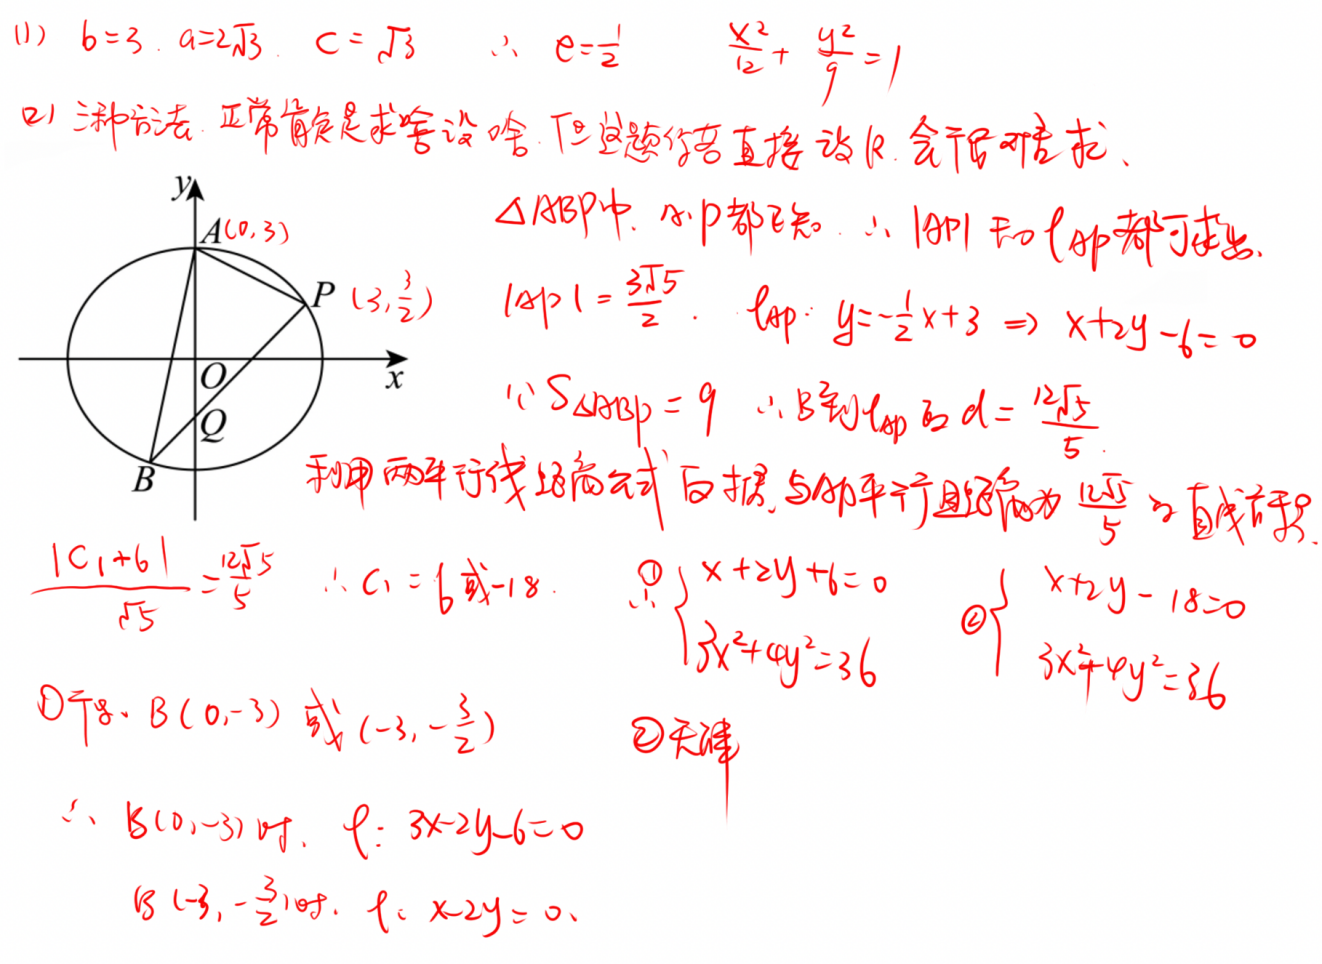 (1) b=3. a=2√3. c=√3 ∴ e=1/2 x²/12+y²/9=1
(2) 三种方法. 正常肯定是求啥设啥. 但这题你若直接设k. 会很难求、
y
A(0,3)
P (3,3/2)
O
x
Q
B
△ABP中, A、P都已知. ∴ |AP| 和 l_AP 都可求出.
|AP|=3√5/2. l_AP: y=-1/2x+3 ⇒ x+2y-6=0
∵ S△ABP=9 ∴ B到l_AP的d=12√5/5.
利用两平行线距离公式 与AP平行且距离为12√5/5的直线
|C₁+6|/√5=12√5/5 ∴ C₁=6或-18.
∴ ① { x+2y+6=0 ② { x+2y-18=0
3x²+4y²=36 3x²+4y²=36
① B(0,-3) 或 (-3,-3/2) ②无
∴ B(0,-3)时、 l: 3x-2y-6=0
B(-3,-3/2)时. l: x-2y=0、